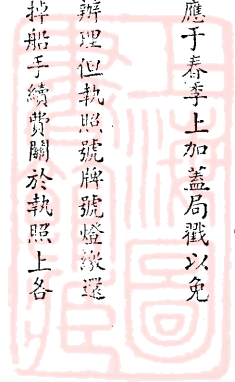 應于春季上加蓋局戳以免
辦理但執照號牌號燈繳還
掉船手續費關於執照上各